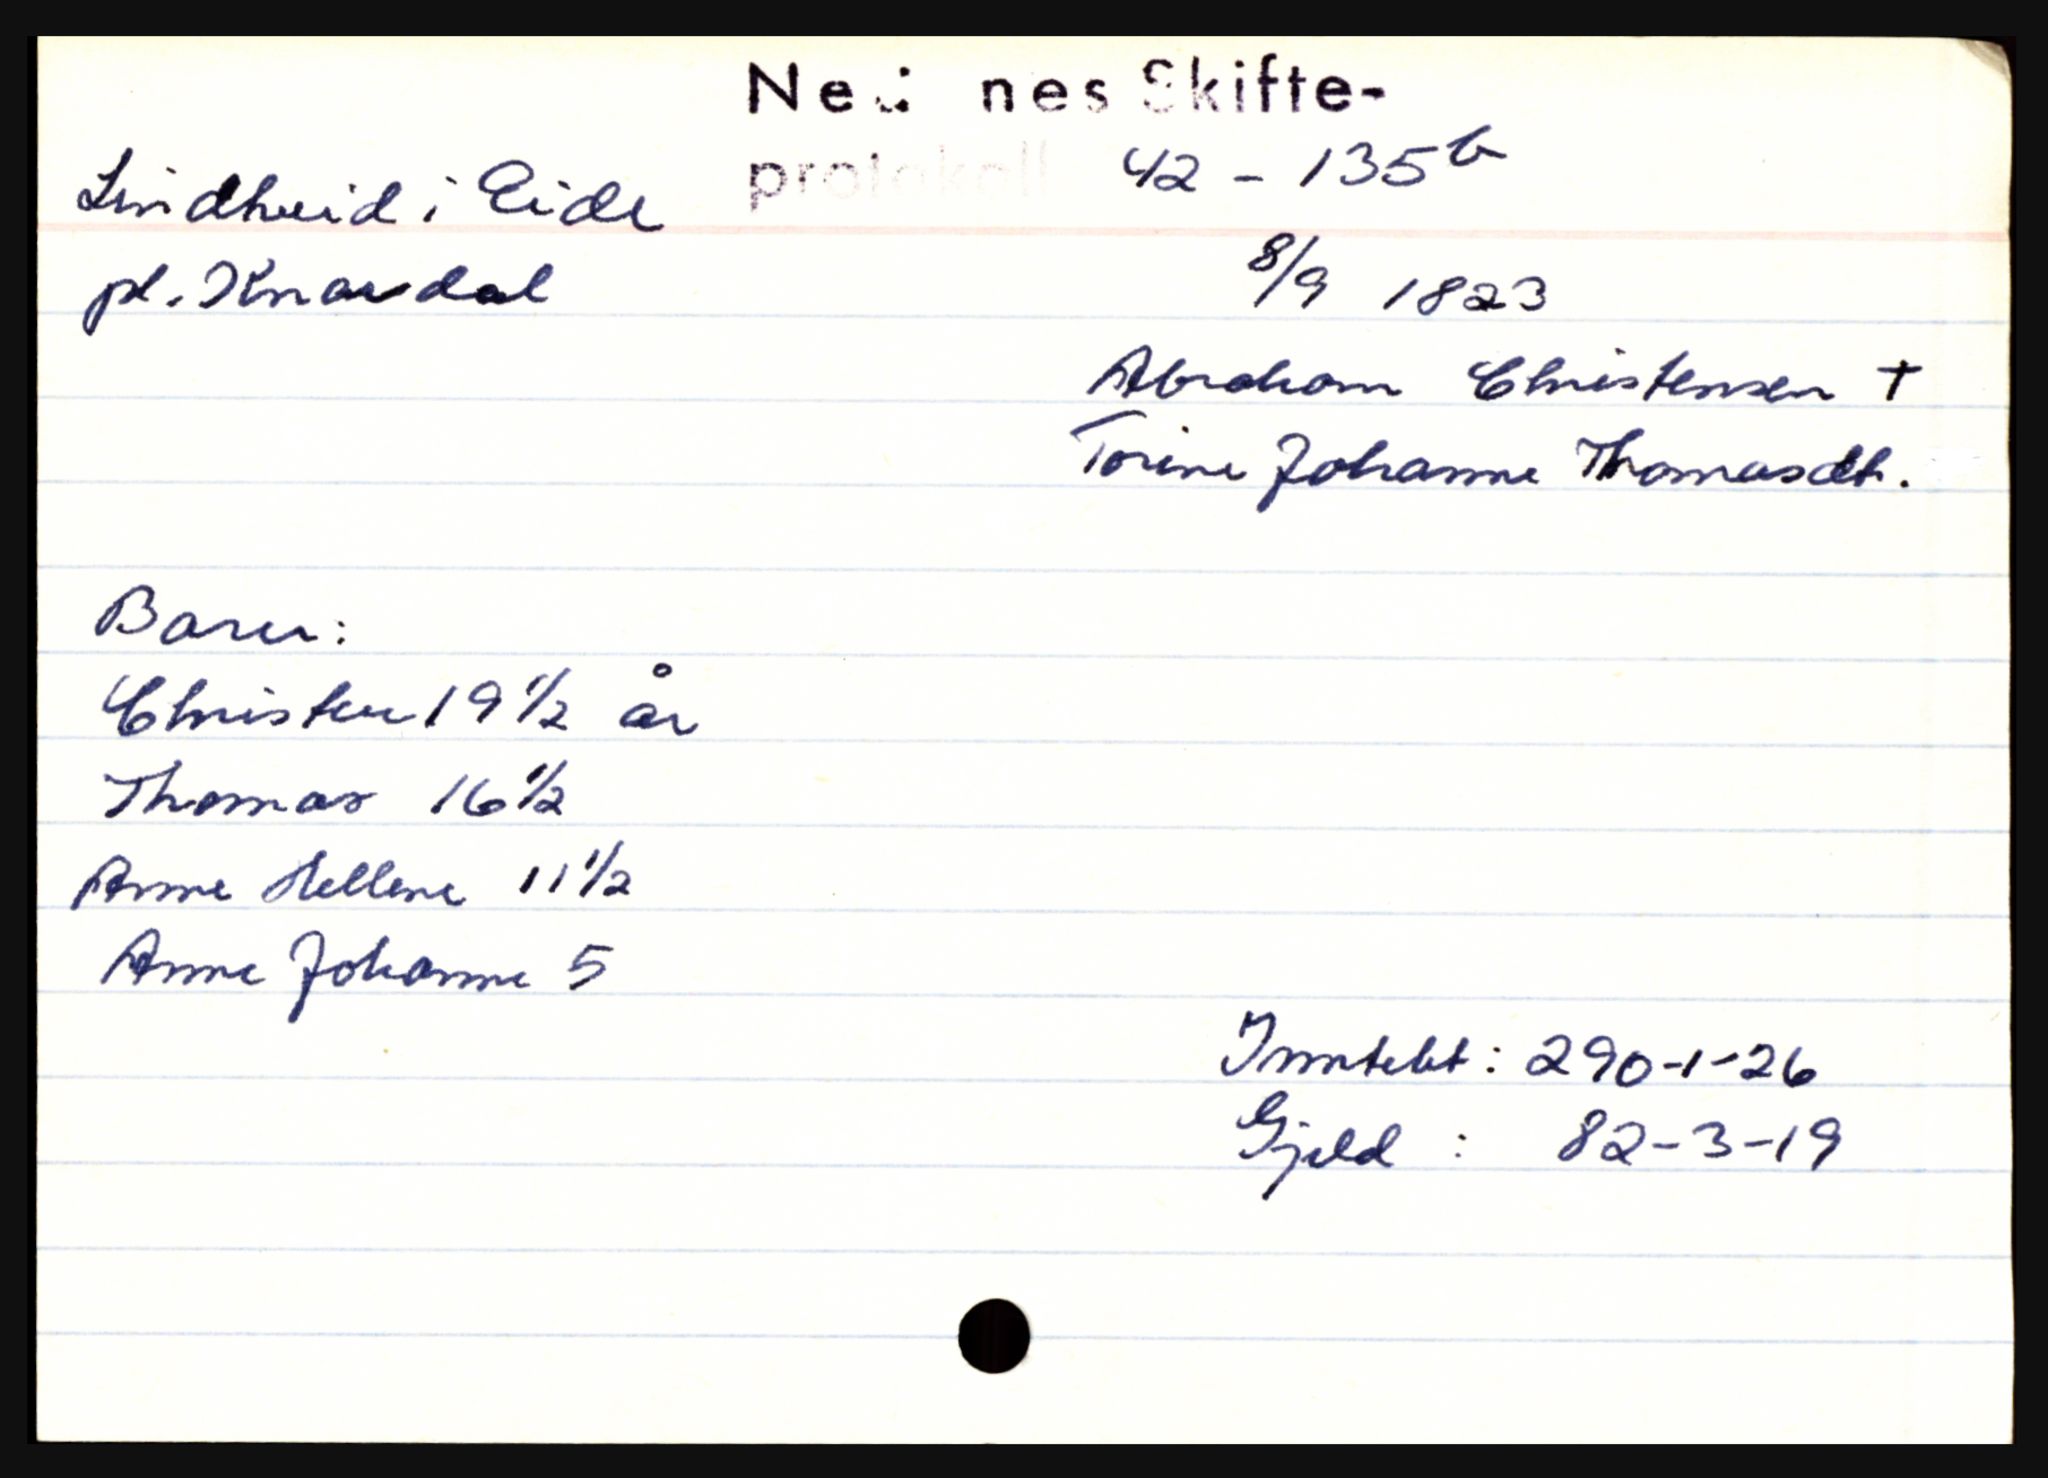 Nedenes Skifte-
protokoll 42 - 135b
Lindheid i Eide
pl. Knardal
8/9 1823
Abraham Christensen †
Torine Johanne Thomasdt.
Barn:
Christen 19 1/2 år
Thomas 16 1/2
Anne Hellene 11 1/2
Anne Johanne 5
Inntekt: 290-1-26
Gjeld : 82-3-19